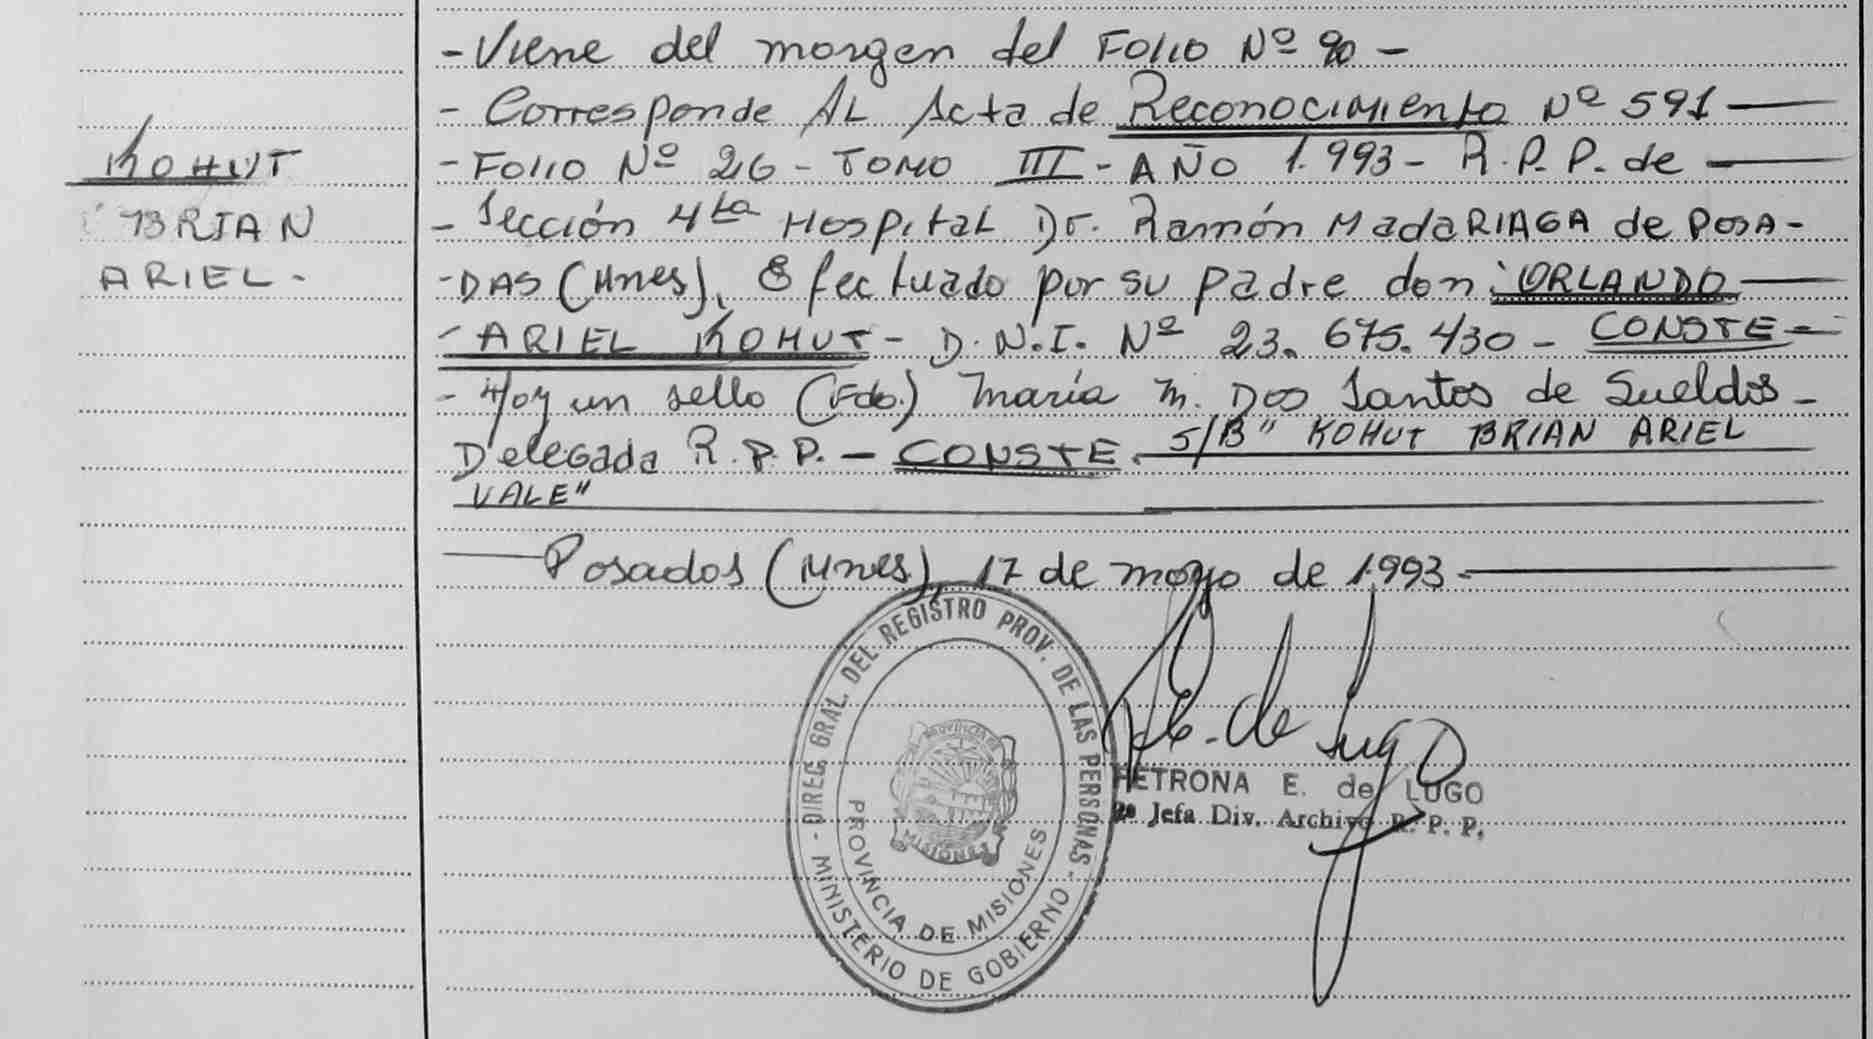 - Viene del margen del Folio Nº 90 -
- Corresponde AL Acta de Reconocimiento Nº 591
KOHUT
- FOLIO Nº 216 - TOMO III - AÑO 1.993 - R.P.P. de
BRIAN
- Sección 4ta Hospital Dr. Ramón MadaRIAGA de POSA-
ARIEL -
- DAS (Mnes), Efectuado por su padre don: ORLANDO
- ARIEL KOHUT - D.N.I. Nº 23.675.430 - CONSTE -
- Hay un sello (Fdo.) María M. Dos Santos de Sueldos -
Delegada R.P.P. - CONSTE. S/B" KOHUT BRIAN ARIEL
VALE"
Posadas (Mnes), 17 de mayo de 1.993 -
- DIREC. GRAL. DEL REGISTRO PROV. DE LAS PERSONAS -
MINISTERIO DE GOBIERNO
PROVINCIA DE MISIONES
PROVINCIA DE
MISIONES
de Lugo
PETRONA E. de LUGO
2ª Jefa Div. Archivo R. P. P.